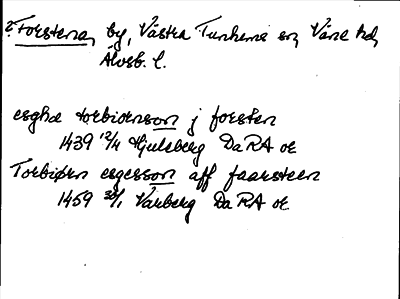 ? Forstena, by, Västra Tunhems sn, Väne hd,
Älvsb. l.
esghæ torbiornson j forsten
1439 12/4 Hjulsberg DaRA or
Torbiørn esgesson aff faarsteen
1459 30/1 Varberg DaRA or